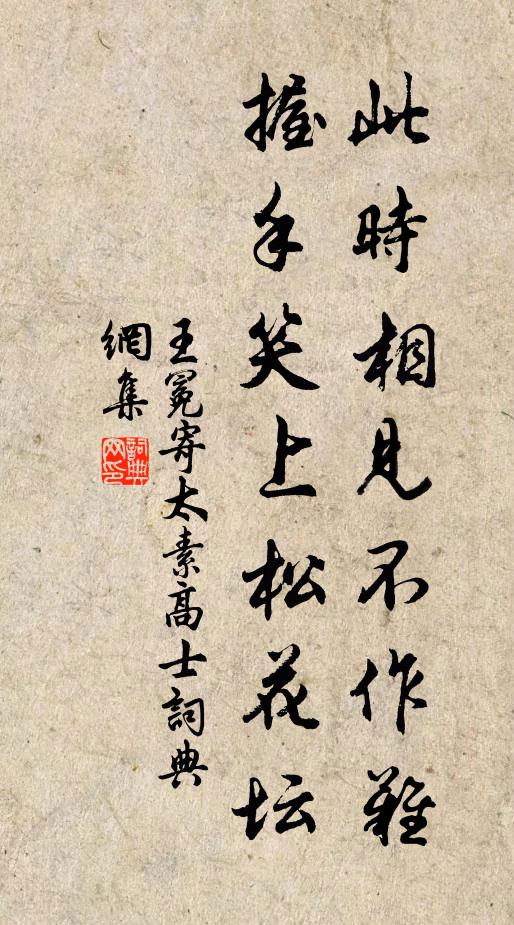 此時相見不作難
握手笑上松花坛
王冕寄太素高士詞典
網集
詞典
网印